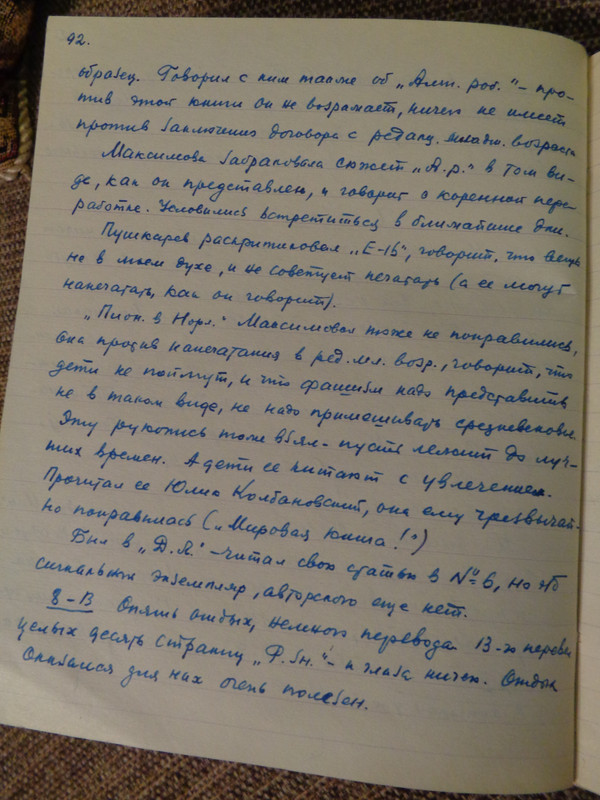 92.
образец. Говорил с ним также об „Алт. роб." – про-
тив этой книги он не возражает, ничего не имеет
против заключения договора с редакц. младш. возраста
Максимова забраковала сюжет „А.р." в том ви-
де, как он представлен, и говорит о коренной пере-
работке. Условились встретиться в ближайшие дни.
Пушкарев раскритиковал „Е-16", говорит, что вещь
не в моем духе, и не советует печатать (а ее могут
напечатать, как он говорит).
„Пион. в Норл." Максимовой тоже не понравились,
она против напечатания в ред. мл. возр., говорит, что
дети не поймут, и что фашизм надо представить
не в таком виде, не надо примешивать средневековье.
Эту рукопись тоже взял – пусть лежит до луч-
ших времен. А дети ее читают с увлечением.
Прочитал ее Юлик Колбановский, она ему чрезвычай-
но понравилась („Мировая книга!")
Был в „Д.Л." – читал свою статью в № 6, но это
сигнальный экземпляр, авторского еще нет.
8–13 Опять отдых, немного перевода. 13-го перевел
целых десять страниц „Ф. зн." – и глаза ничего. Отдых
оказался для них очень полезен.